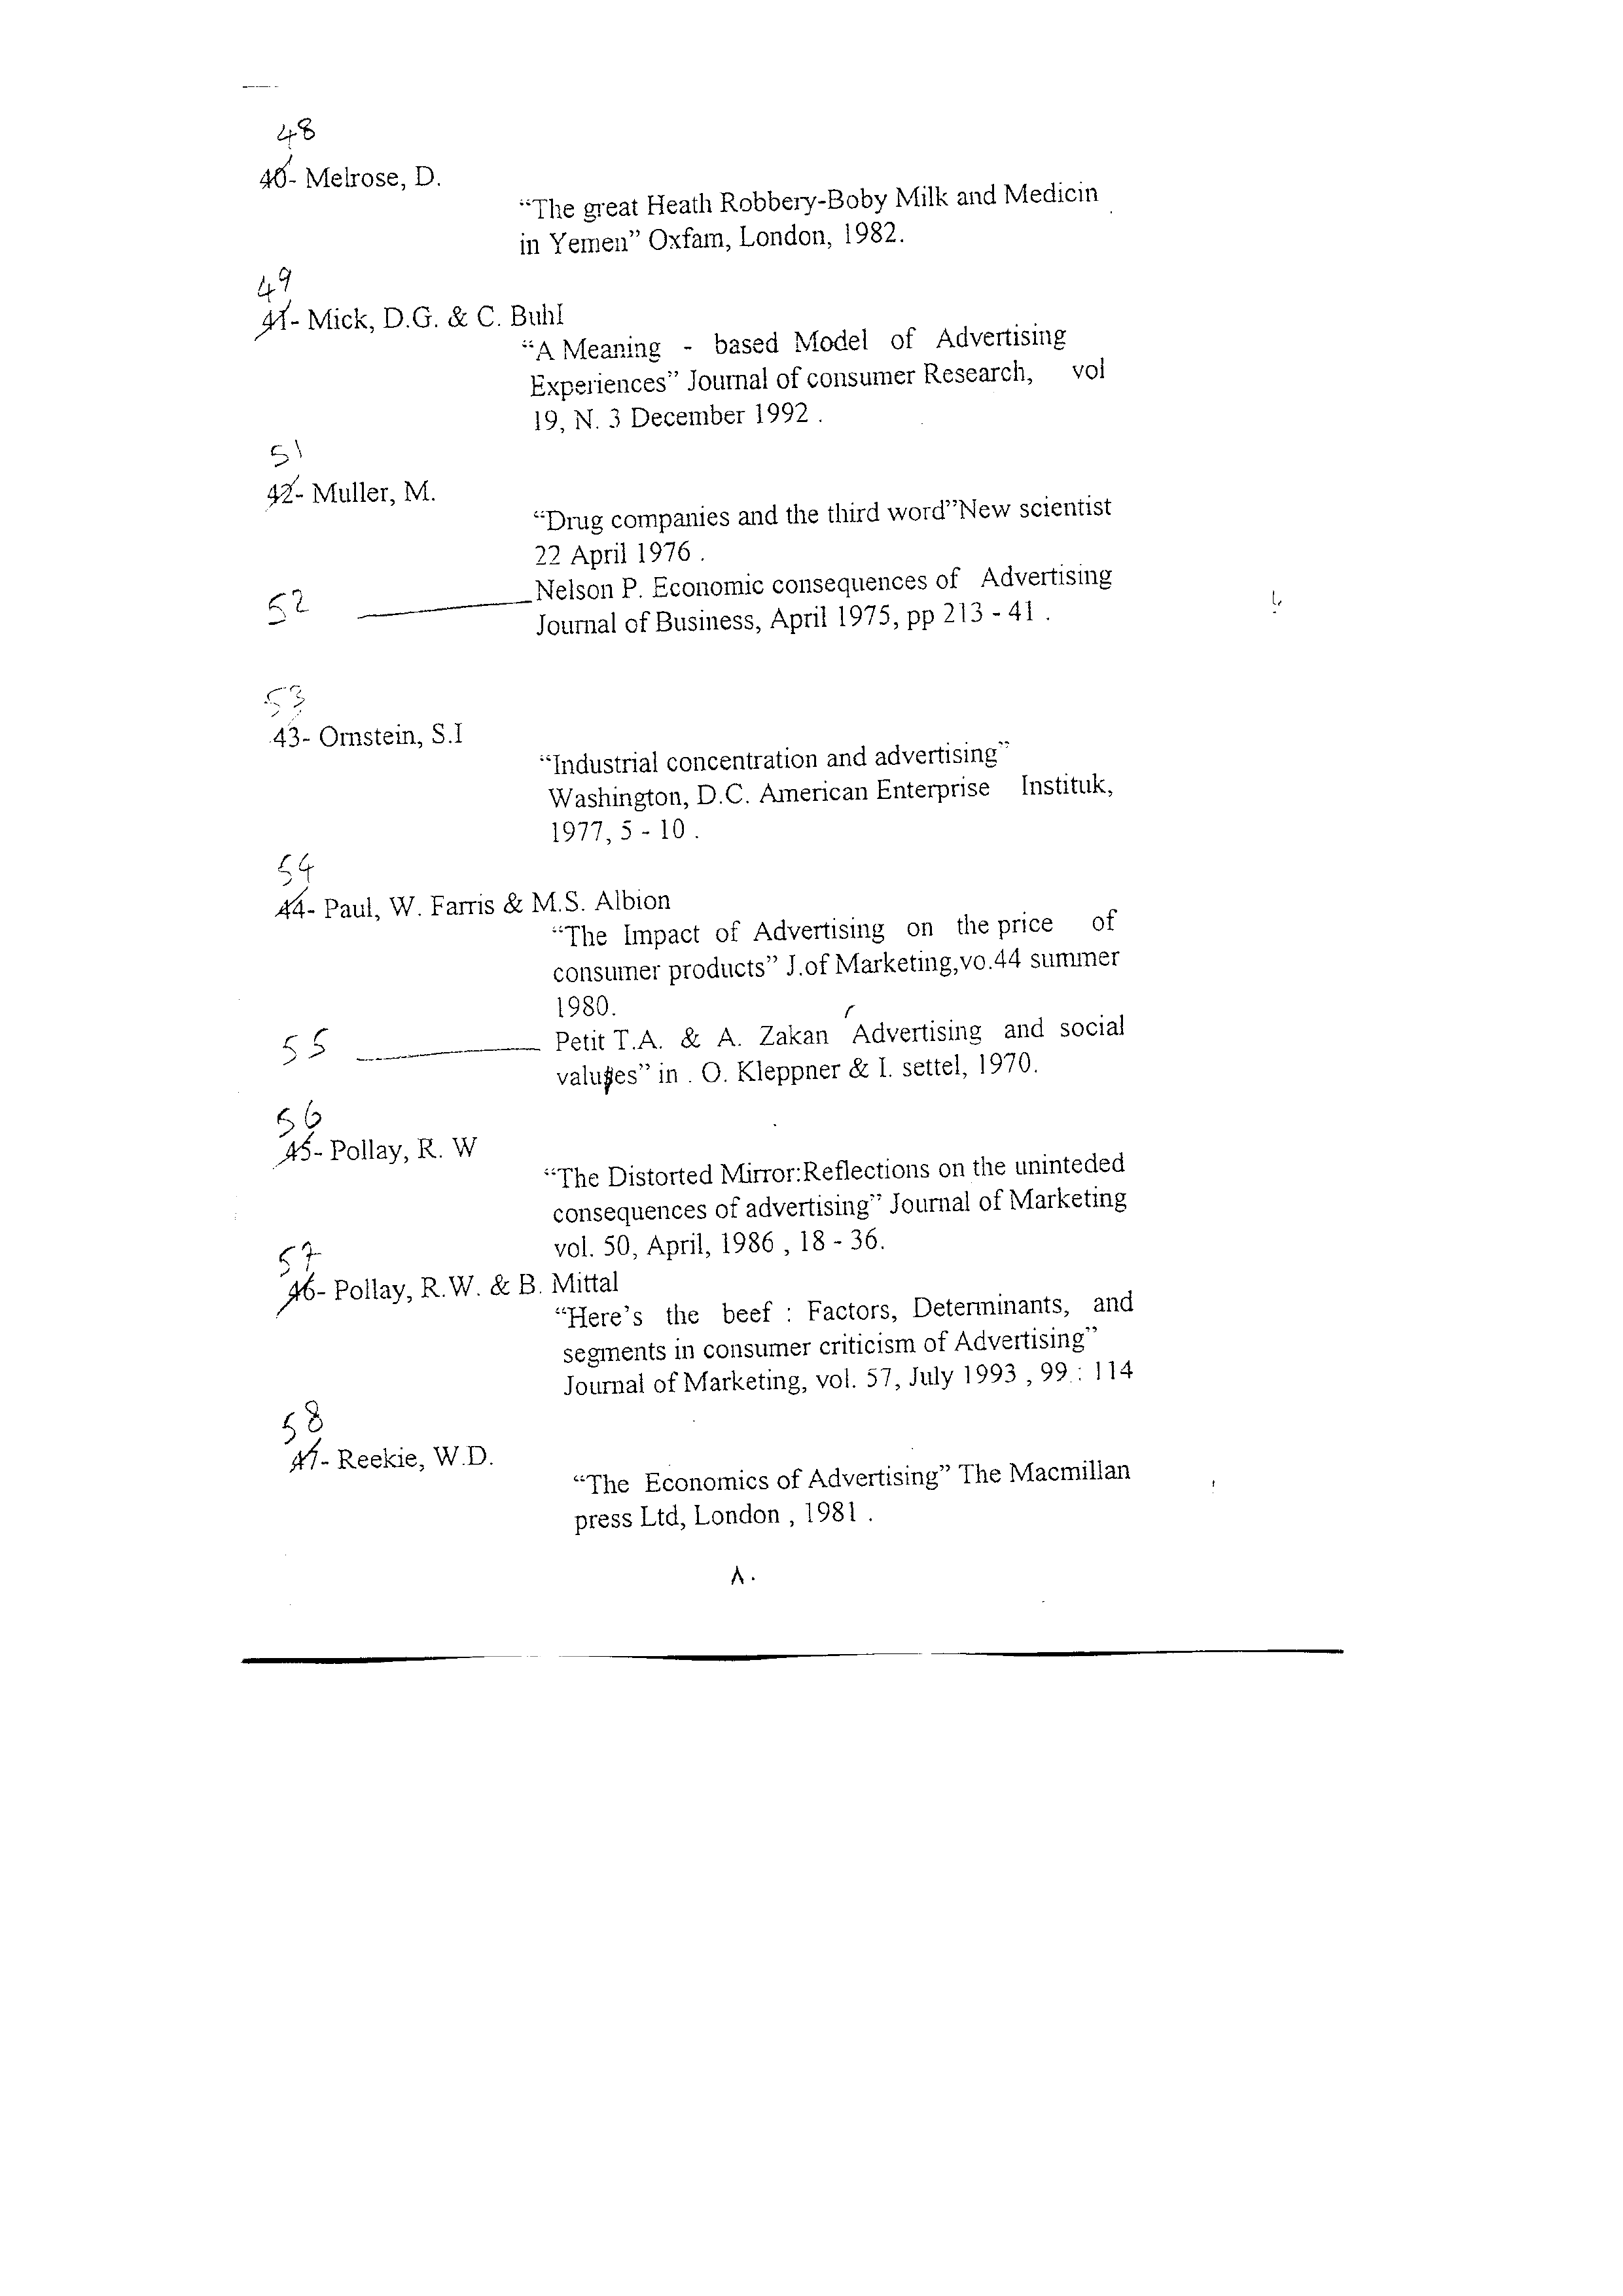 48
40- Melrose, D.
“The great Heath Robbery-Boby Milk and Medicin
in Yemen” Oxfam, London, 1982.
49
41- Mick, D.G. & C. Buhl
“A Meaning - based Model of Advertising
Experiences” Journal of consumer Research, vol
19, N. 3 December 1992 .
51
42- Muller, M.
“Drug companies and the third word”New scientist
22 April 1976 .
52 Nelson P. Economic consequences of Advertising
Journal of Business, April 1975, pp 213 - 41 .
53
43- Ornstein, S.I
“Industrial concentration and advertising”
Washington, D.C. American Enterprise Instituk,
1977, 5 - 10 .
54
44- Paul, W. Farris & M.S. Albion
“The Impact of Advertising on the price of
consumer products” J.of Marketing,vo.44 summer
1980.
55 Petit T.A. & A. Zakan Advertising and social
values” in . O. Kleppner & I. settel, 1970.
56
45- Pollay, R. W
“The Distorted Mirror:Reflections on the uninteded
consequences of advertising” Journal of Marketing
vol. 50, April, 1986 , 18 - 36.
57
46- Pollay, R.W. & B. Mittal
“Here’s the beef : Factors, Determinants, and
segments in consumer criticism of Advertising”
Journal of Marketing, vol. 57, July 1993 , 99 : 114
58
47- Reekie, W.D.
“The Economics of Advertising” The Macmillan
press Ltd, London , 1981 .
٨٠